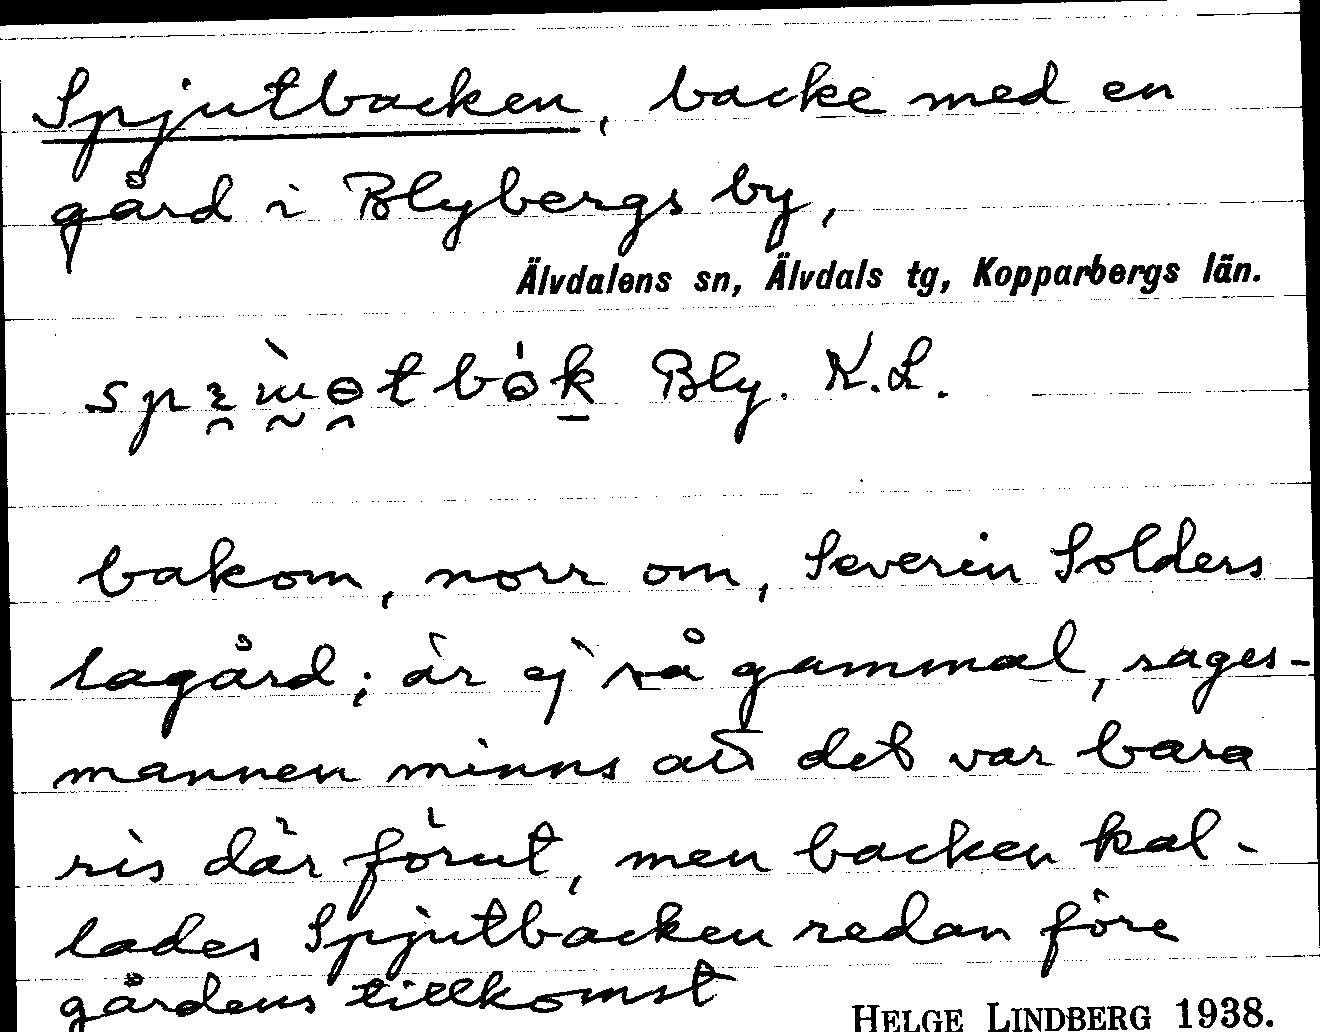 Spjutbacken, backe med en
gård i Blybergs by,
Älvdalens sn, Älvdals tg, Kopparbergs län.
Bly. K.L.
bakom, norr om, Severin Solders
lagård; är ej så gammal, sages-
mannen minns att det var bara
ris där förut, men backen kal-
lades Spjutbacken redan före
gårdens tillkomst
HELGE LINDBERG 1938.